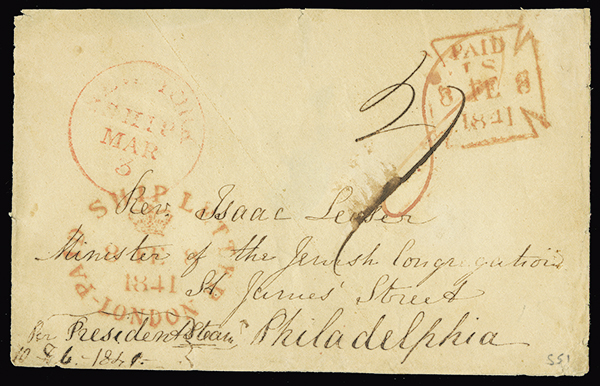 PAID
LS
8 FE 8
1841
NEW YORK
SHIP
MAR
3
PAID SHIP LETTER
8 FE 8
1841
LONDON
Rev. Isaac Leeser
Minister of the Jewish Congregation
St. James' Street
Philadelphia
Per President Steam
1841
551